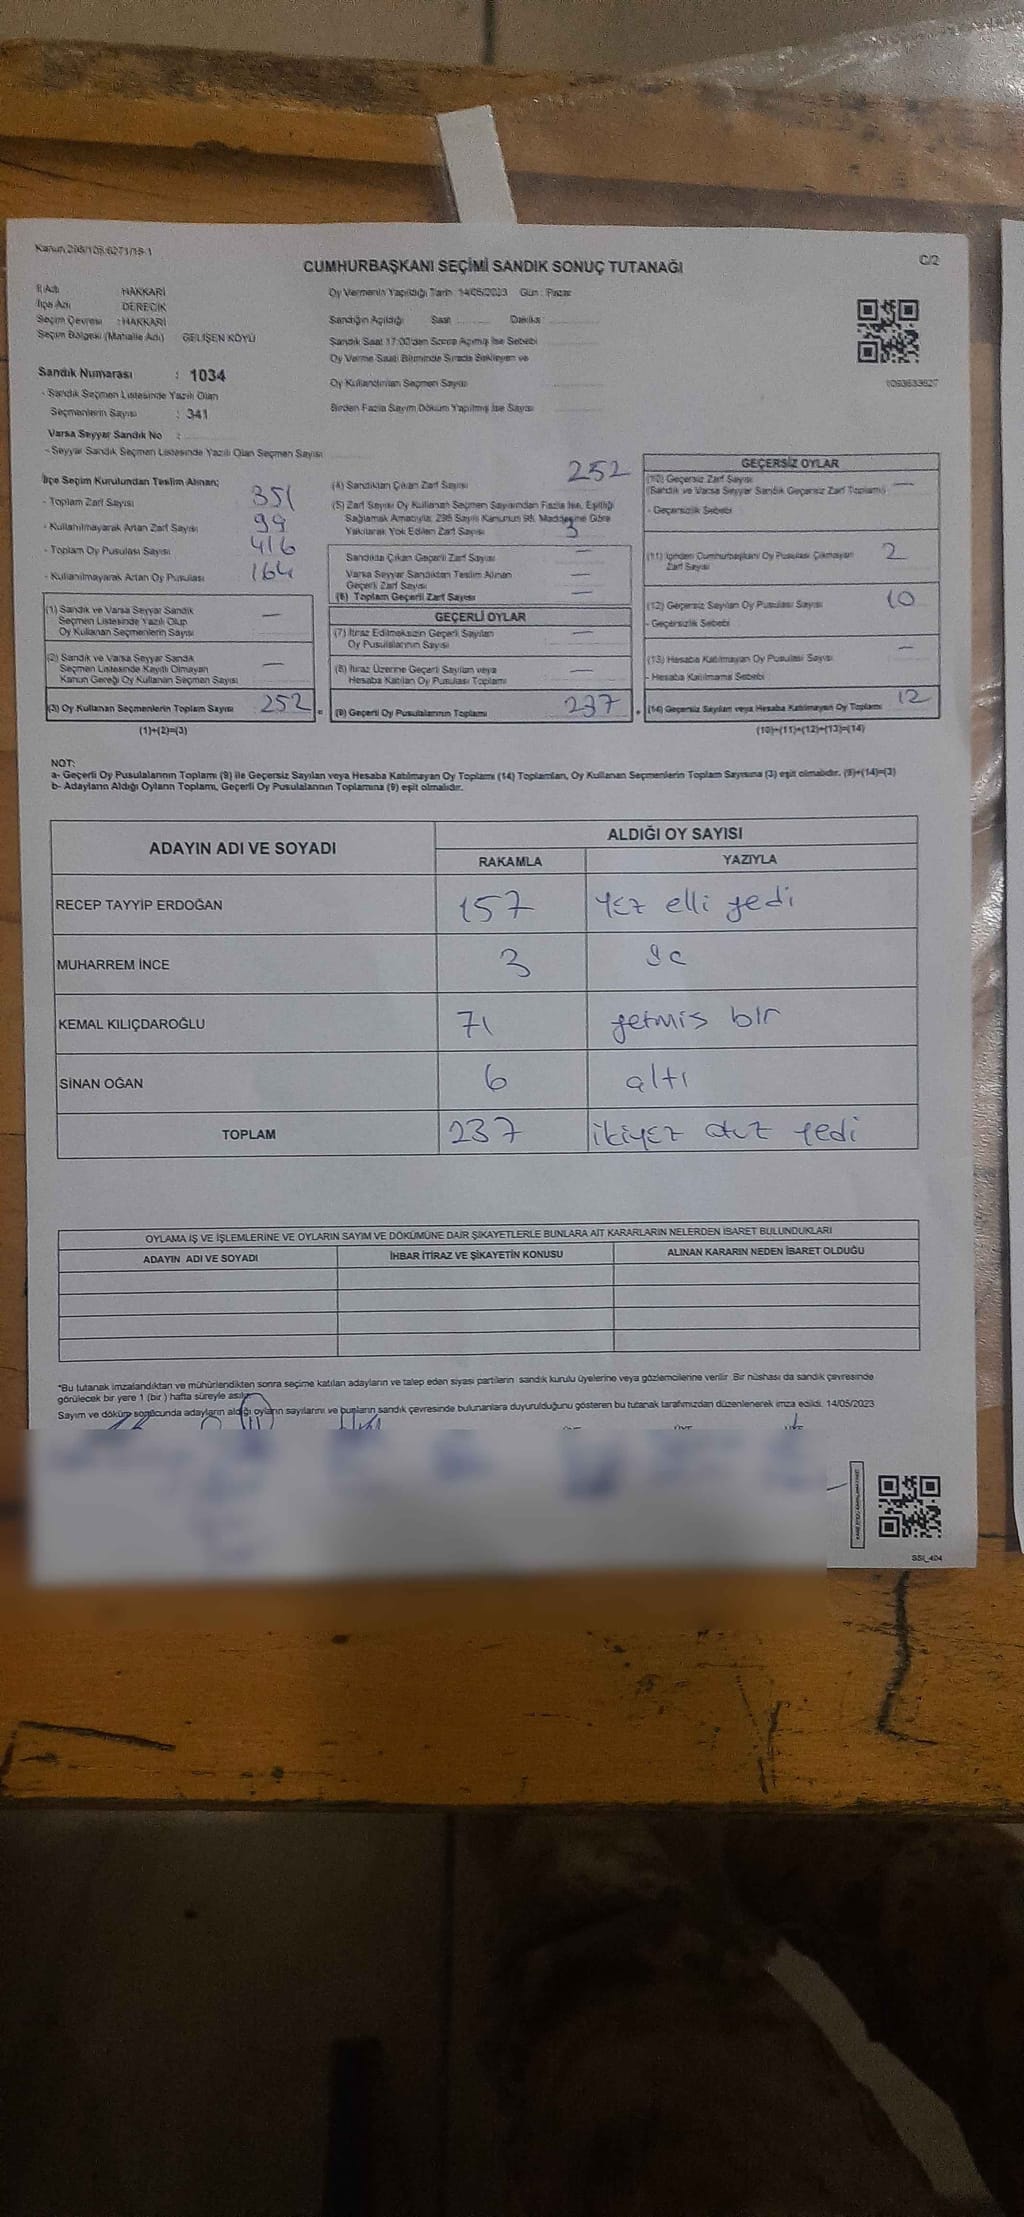 Kanun 298/105;6271/18-1
C/2
CUMHURBAŞKANI SEÇİMİ SANDIK SONUÇ TUTANAĞI
İl Adı HAKKARİ
İlçe Adı DERECİK
Seçim Çevresi : HAKKARİ
Seçim Bölgesi (Mahalle Adı) GELİŞEN KÖYÜ
Sandık Numarası : 1034
- Sandık Seçmen Listesinde Yazılı Olan
Seçmenlerin Sayısı : 341
Varsa Seyyar Sandık No :
- Seyyar Sandık Seçmen Listesinde Yazılı Olan Seçmen Sayısı
Oy Vermenin Yapıldığı Tarih 14/05/2023 Gün : Pazar
Sandığın Açıldığı Saat Dakika :
Sandık Saat 17:00'den Sonra Açılmış İse Sebebi
Oy Verme Saati Bitiminde Sırada Bekleyen ve
Oy Kullandırılan Seçmen Sayısı
Birden Fazla Sayım Döküm Yapılmış İse Sayısı
1093633627
İlçe Seçim Kurulundan Teslim Alınan;
- Toplam Zarf Sayısı 351
- Kullanılmayarak Artan Zarf Sayısı 99
- Toplam Oy Pusulası Sayısı 416
- Kullanılmayarak Artan Oy Pusulası 164
(1) Sandık ve Varsa Seyyar Sandık
Seçmen Listesinde Yazılı Olup
Oy Kullanan Seçmenlerin Sayısı —
(2) Sandık ve Varsa Seyyar Sandık
Seçmen Listesinde Kayıtlı Olmayan
Kanun Gereği Oy Kullanan Seçmen Sayısı —
(3) Oy Kullanan Seçmenlerin Toplam Sayısı 252 =
(1)+(2)=(3)
(4) Sandıktan Çıkan Zarf Sayısı 252
(5) Zarf Sayısı Oy Kullanan Seçmen Sayısından Fazla İse, Eşitliği
Sağlamak Amacıyla; 298 Sayılı Kanunun 98. Maddesine Göre
Yakılarak Yok Edilen Zarf Sayısı 3
Sandıkta Çıkan Geçerli Zarf Sayısı —
Varsa Seyyar Sandıktan Teslim Alınan
Geçerli Zarf Sayısı —
(6) Toplam Geçerli Zarf Sayısı —
GEÇERLİ OYLAR
(7) İtiraz Edilmeksizin Geçerli Sayılan
Oy Pusulalarının Sayısı —
(8) İtiraz Üzerine Geçerli Sayılan veya
Hesaba Katılan Oy Pusulası Toplamı —
(9) Geçerli Oy Pusulalarının Toplamı 237 +
GEÇERSİZ OYLAR
(10) Geçersiz Zarf Sayısı
(Sandık ve Varsa Seyyar Sandık Geçersiz Zarf Toplamı) —
- Geçersizlik Sebebi
(11) İçinden Cumhurbaşkanı Oy Pusulası Çıkmayan
Zarf Sayısı 2
(12) Geçersiz Sayılan Oy Pusulası Sayısı 10
- Geçersizlik Sebebi
(13) Hesaba Katılmayan Oy Pusulası Sayısı —
- Hesaba Katılmama Sebebi
(14) Geçersiz Sayılan veya Hesaba Katılmayan Oy Toplamı 12
(10)+(11)+(12)+(13)=(14)
NOT:
a- Geçerli Oy Pusulalarının Toplamı (9) ile Geçersiz Sayılan veya Hesaba Katılmayan Oy Toplamı (14) Toplamları, Oy Kullanan Seçmenlerin Toplam Sayısına (3) eşit olmalıdır. (9)+(14)=(3)
b- Adayların Aldığı Oyların Toplamı, Geçerli Oy Pusulalarının Toplamına (9) eşit olmalıdır.
ADAYIN ADI VE SOYADI ALDIĞI OY SAYISI
RAKAMLA YAZIYLA
RECEP TAYYİP ERDOĞAN 157 Yüz elli yedi
MUHARREM İNCE 3 üc
KEMAL KILIÇDAROĞLU 71 yetmis bir
SİNAN OĞAN 6 altı
TOPLAM 237 ikiyüz otuz yedi
OYLAMA İŞ VE İŞLEMLERİNE VE OYLARIN SAYIM VE DÖKÜMÜNE DAİR ŞİKAYETLERLE BUNLARA AİT KARARLARIN NELERDEN İBARET BULUNDUKLARI
ADAYIN ADI VE SOYADI İHBAR İTİRAZ VE ŞİKAYETİN KONUSU ALINAN KARARIN NEDEN İBARET OLDUĞU
*Bu tutanak imzalandıktan ve mühürlendikten sonra seçime katılan adayların ve talep eden siyasi partilerin sandık kurulu üyelerine veya gözlemcilerine verilir. Bir nüshası da sandık çevresinde
görülecek bir yere 1 (bir) hafta süreyle asılır.
Sayım ve döküm sonucunda adayların aldığı oyların sayılarını ve bunların sandık çevresinde bulunanlara duyurulduğunu gösteren bu tutanak tarafımızdan düzenlenerek imza edildi. 14/05/2023
SSİ_404